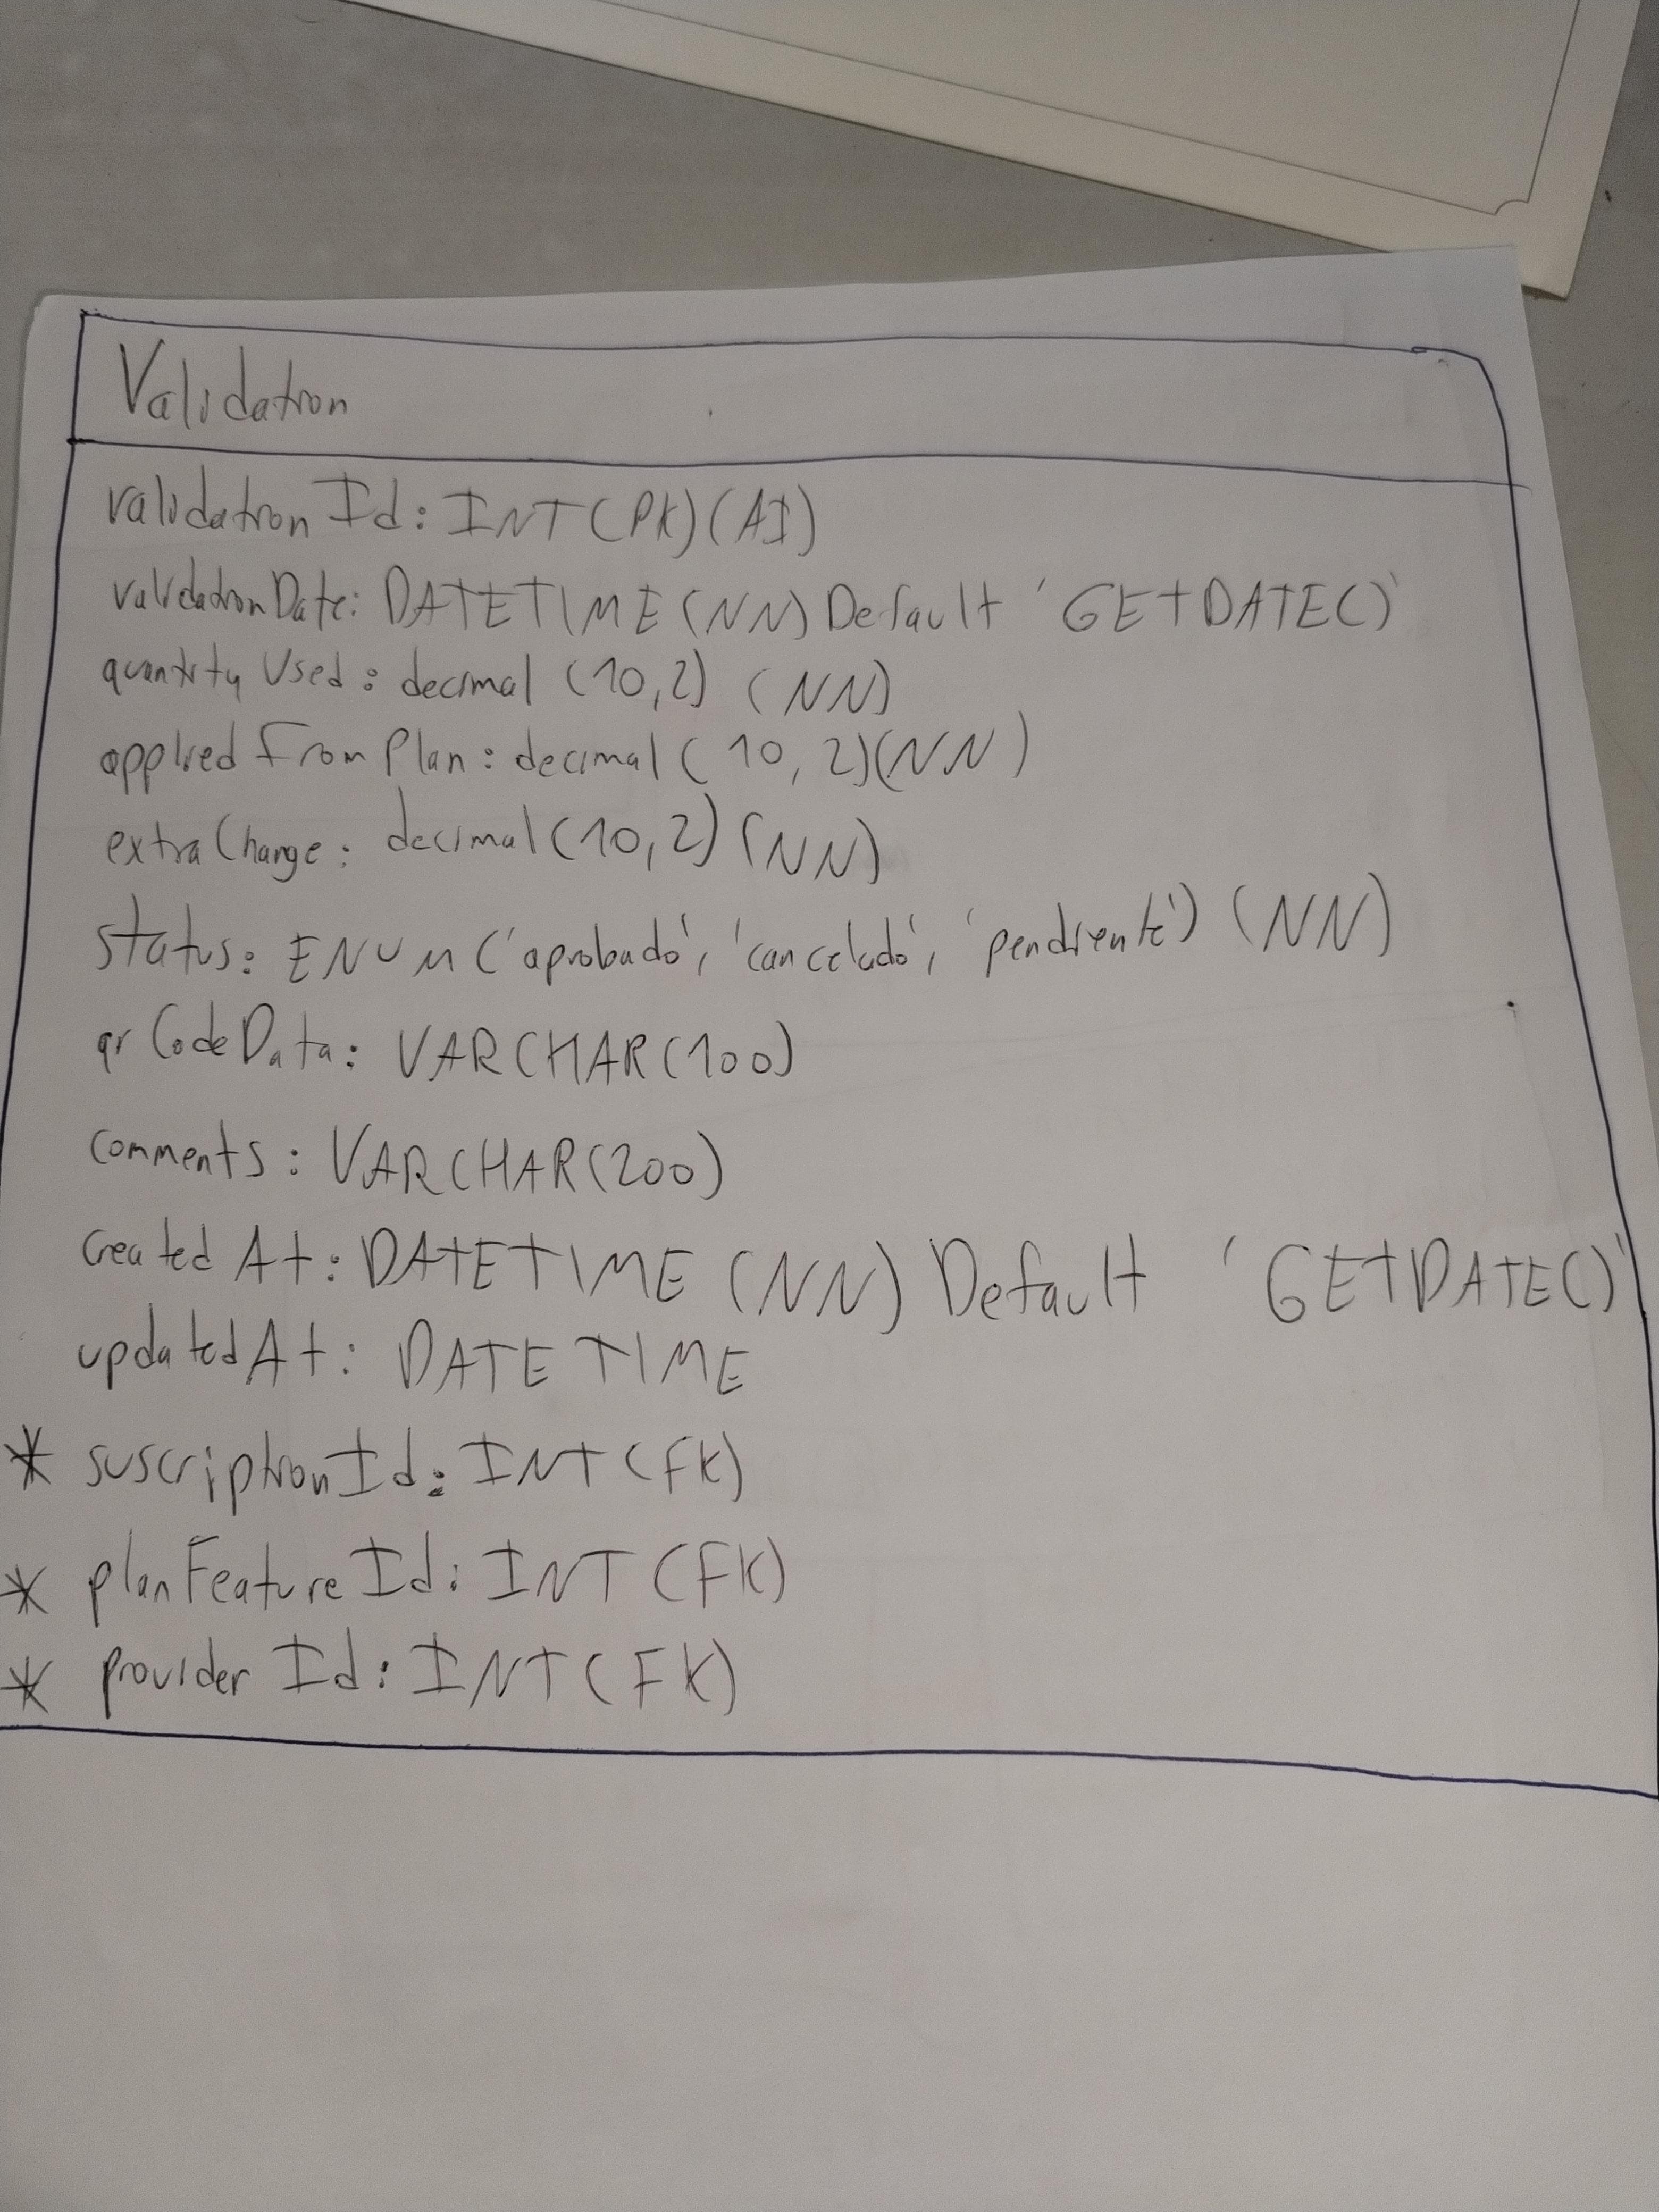 Validation
validationId: INT(PK)(AI)
validationDate: DATETIME(NN) Default 'GETDATE()'
quantityUsed: decimal (10,2) (NN)
appliedFromPlan: decimal(10,2)(NN)
extraCharge: decimal(10,2)(NN)
status: ENUM('aprobado', 'cancelado', 'pendiente') (NN)
qrCodeData: VARCHAR(100)
comments: VARCHAR(200)
createdAt: DATETIME (NN) Default 'GETDATE()'
updatedAt: DATETIME
* suscriptionId: INT(FK)
* planFeatureId: INT(FK)
* providerId: INT(FK)